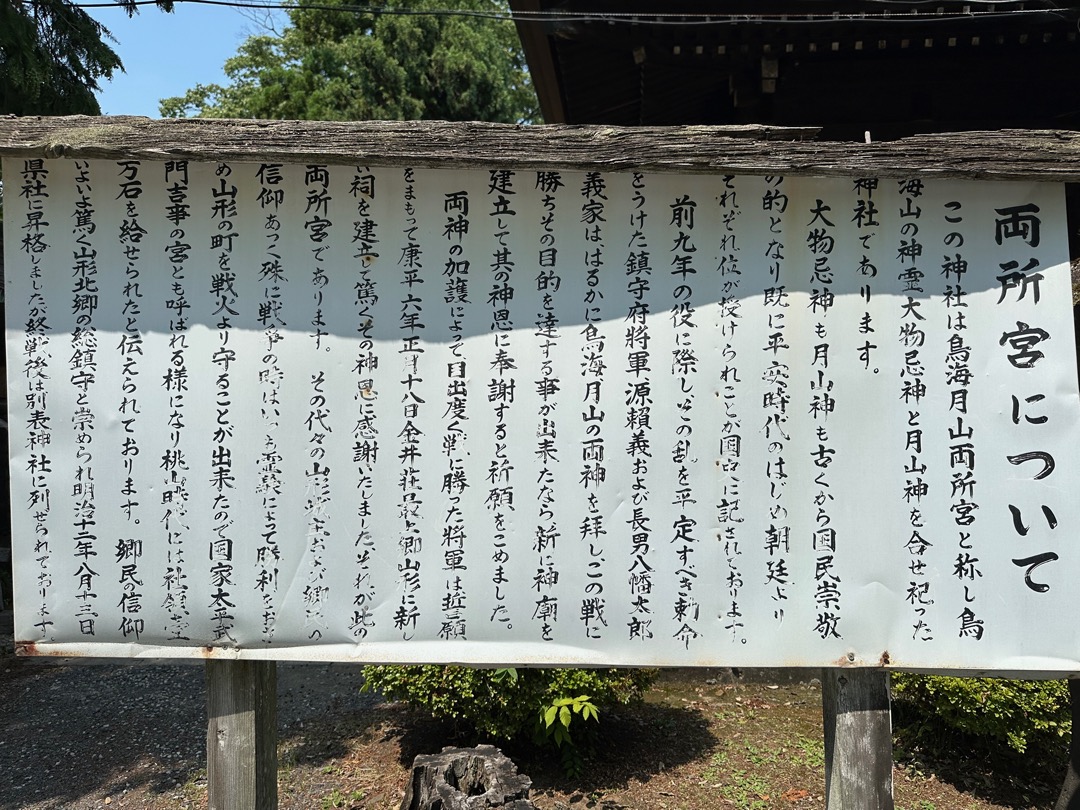 両所宮について
この神社は鳥海月山両所宮と称し鳥
海山の神霊大物忌神と月山神を合せ祀った
神社であります。
大物忌神も月山神も古くから国民崇敬
の的となり既に平安時代のはじめ朝廷より
それぞれ位が授けられことが国史に記されております。
前九年の役に際しその乱を平定すべき勅命
をうけた鎮守府将軍源頼義および長男八幡太郎
義家は、はるかに鳥海月山の両神を拝しこの戦に
勝ちその目的を達する事が出来たなら新に神廟を
建立して其の神恩に奉謝すると祈願をこめました。
両神の加護によって、目出度く戦に勝った将軍は誓願
をまもって康平六年正月十八日金井荘最上郷山形に新し
い祠を建立して篤くその神恩に感謝いたしました。それが此の
両所宮であります。その代々の山形城主および郷民の
信仰あつく殊に戦争の時はいつも霊験によって勝利をおさ
め山形の町を戦火より守ることが出来たので国家太平武
門吉事の宮とも呼ばれる様になり桃山時代には社領壱
万石を給せられたと伝えられております。郷民の信仰
いよいよ篤く山形北郷の総鎮守と崇められ明治十二年八月十三日
県社に昇格しましたが終戦後は別表神社に列せられております。